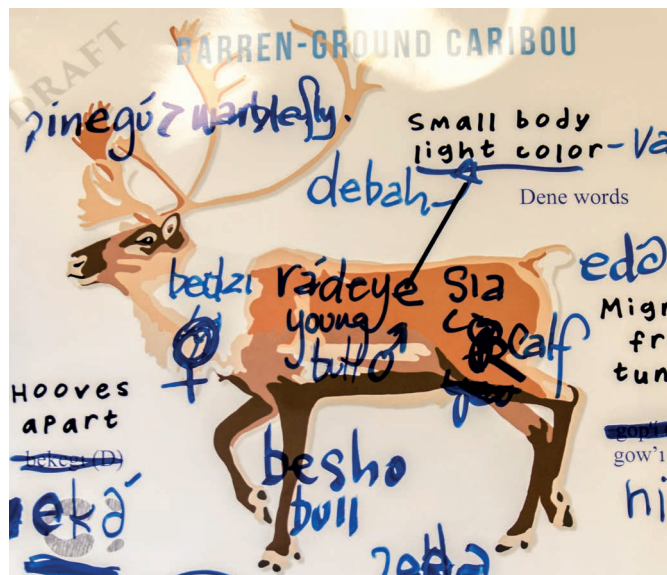 DRAFT
BARREN-GROUND CARIBOU
warblefly.
Small body
light color - va
debah
Dene words
bedzi rádeye sia
young
bull ♂
calf
edá
Migr
fr
tun
Hooves
apart
bekegı (D)
eká
besho
bull
gow'ı
ni